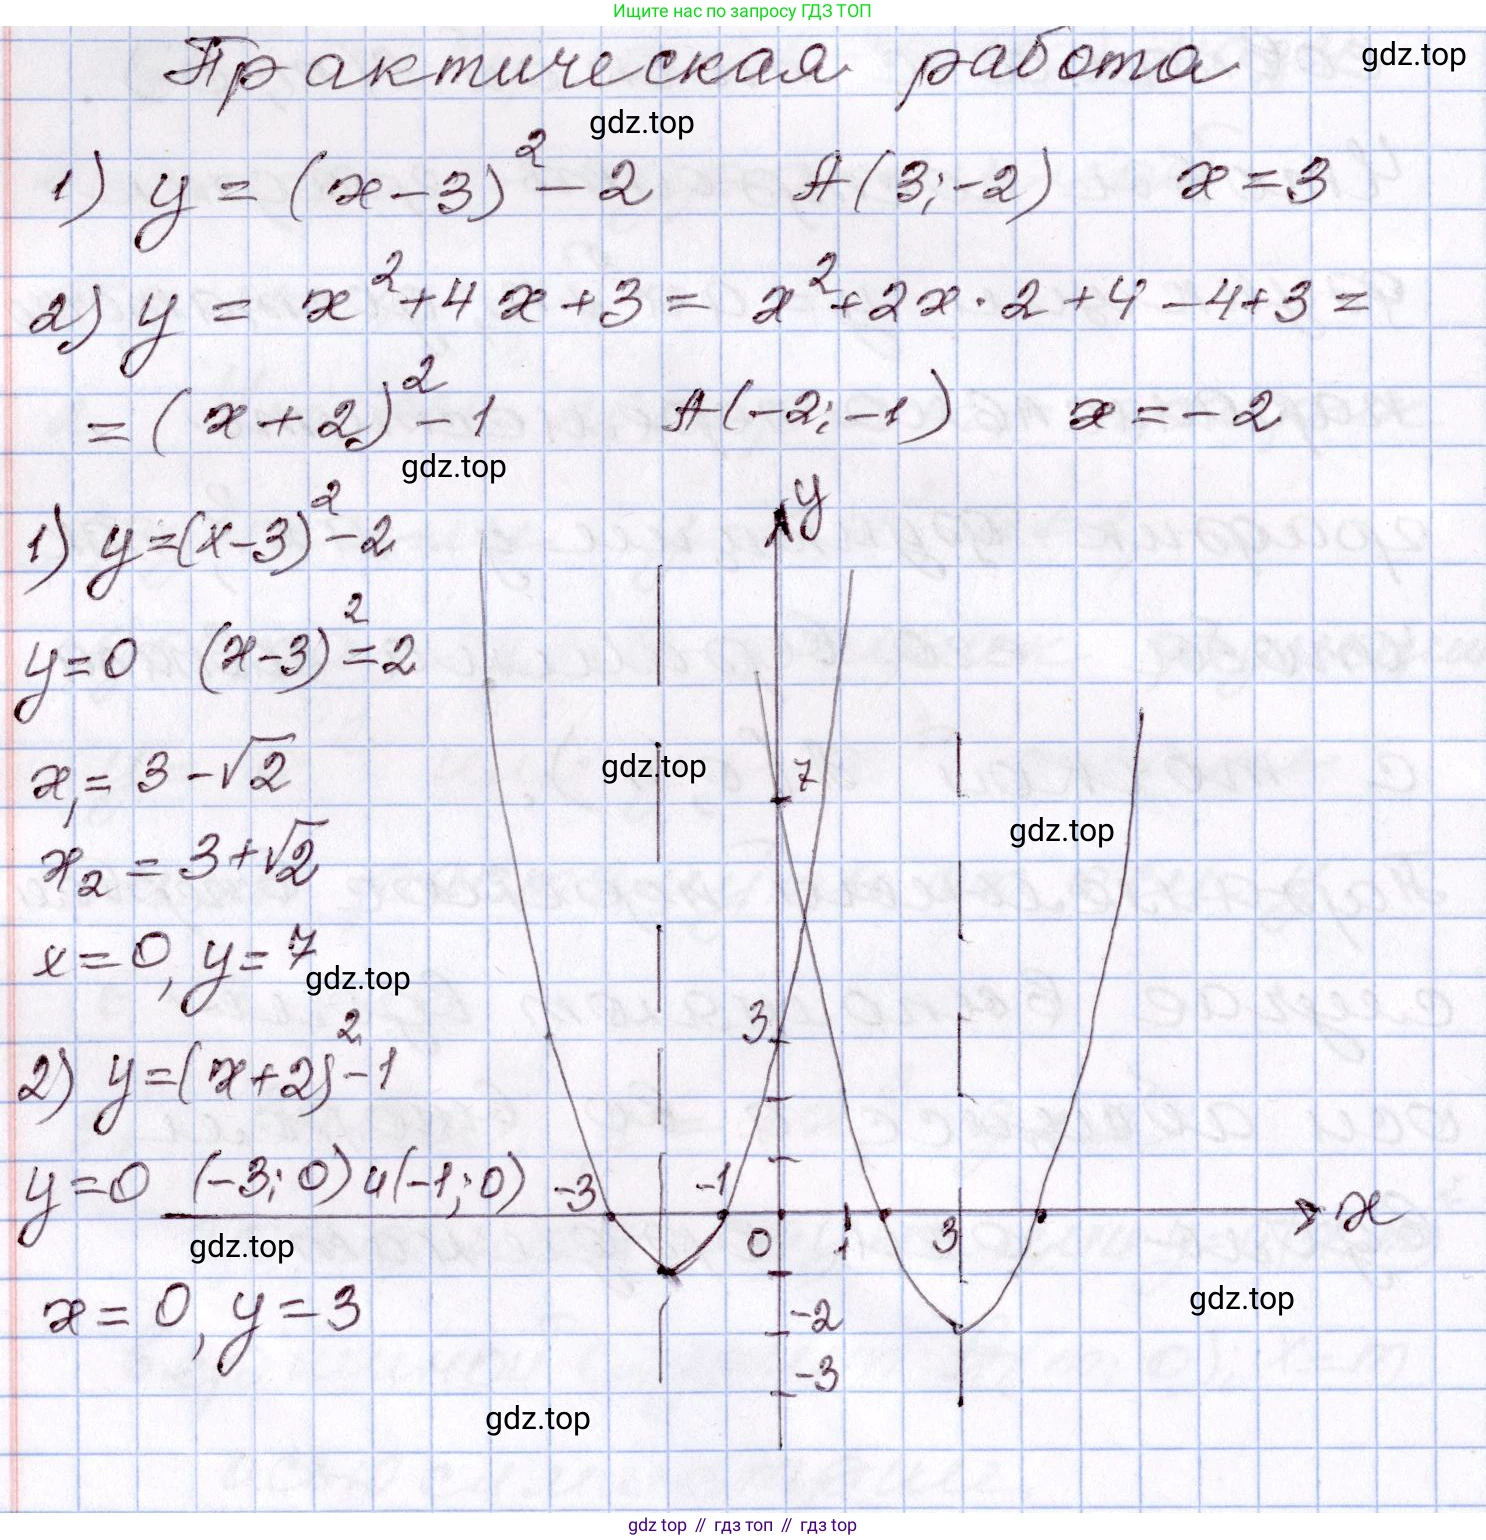 Ищите нас по запросу ГДЗ ТОП
Практическая работа
gdz.top
gdz.top
1) y = (x-3)² - 2   A(3; -2)   x = 3
2) y = x² + 4x + 3 = x² + 2x · 2 + 4 - 4 + 3 =
= (x + 2)² - 1   A(-2; -1)   x = -2
gdz.top
1) y = (x-3)² - 2
y = 0   (x-3)² = 2
x₁ = 3 - √2
x₂ = 3 + √2
x = 0, y = 7
gdz.top
2) y = (x+2)² - 1
y = 0   (-3; 0) и (-1; 0)
gdz.top
x = 0, y = 3
y
gdz.top
7
gdz.top
3
-3
-1
0
1
3
x
-2
gdz.top
-3
gdz.top
gdz top // гдз топ // гдз top